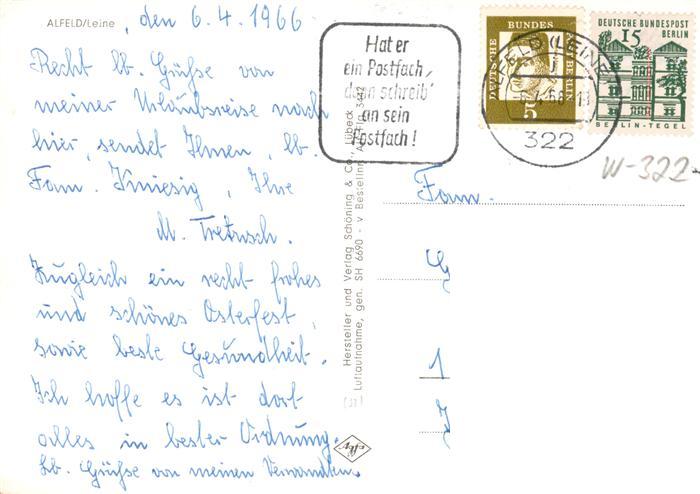 ALFELD/Leine , den 6.4.1966
Recht lb. Grüße von
meiner Urlaubsreise nach
hier, sendet Ihnen, lb.
Fam. Ihre
M.
Zugleich ein recht frohes
und schönes Osterfest,
sowie beste Gesundheit.
Ich hoffe es ist dort
alles in bester Ordnung.
Lb. Grüße von meinen Verwandten.
Hersteller und Verlag Schöning & Co., Lübeck
Luftaufnahme, gen. SH 6690 - v Bestellnr. 3442
Agfa
Hat er
ein Postfach,
dann schreib'
an sein
Postfach!
DEUTSCHE BUNDESPOST BERLIN
5
ALFELD (LEINE)
322
DEUTSCHE BUNDESPOST
15 BERLIN
BERLIN-TEGEL
W-322-
Fam.
1